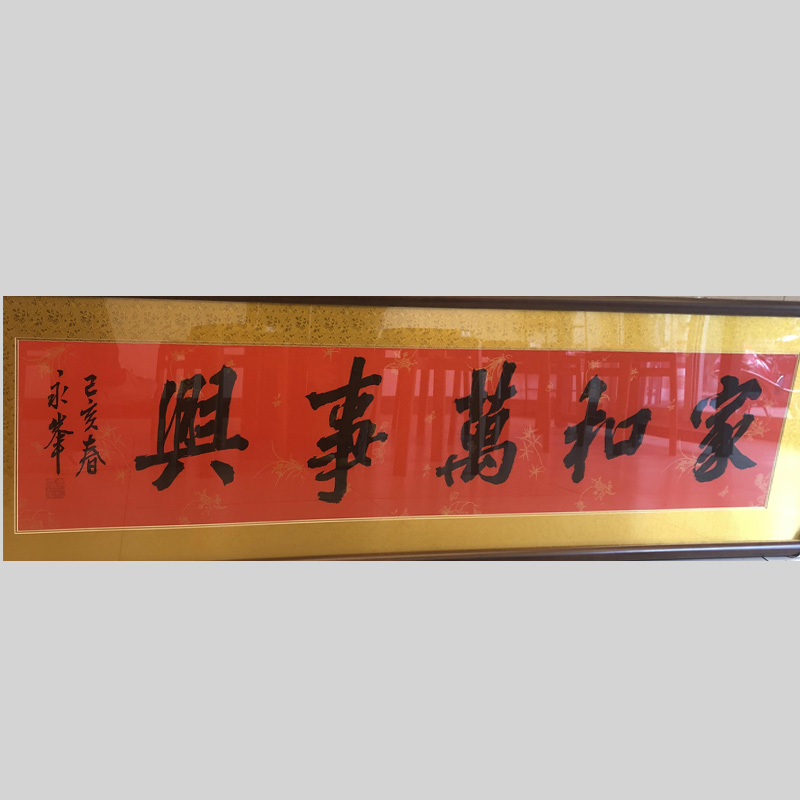 家和萬事興
己亥春
永峯